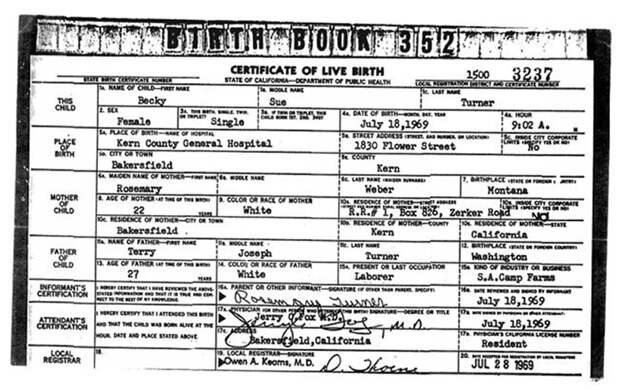 BIRTH BOOK 352
CERTIFICATE OF LIVE BIRTH 1500 3237
STATE BIRTH CERTIFICATE NUMBER STATE OF CALIFORNIA—DEPARTMENT OF PUBLIC HEALTH LOCAL REGISTRATION DISTRICT AND CERTIFICATE NUMBER
THIS CHILD
1A. NAME OF CHILD—FIRST NAME 1B. MIDDLE NAME 1C. LAST NAME
Becky Sue Turner
2. SEX 3A. THIS BIRTH, SINGLE, TWIN, OR TRIPLET? 3B. IF TWIN OR TRIPLET, THIS CHILD BORN 1ST, 2ND, 3RD? 4A. DATE OF BIRTH—MONTH, DAY, YEAR 4B. HOUR
Female Single July 18,1969 9:02 A.
PLACE OF BIRTH
5A. PLACE OF BIRTH—NAME OF HOSPITAL 5B. STREET ADDRESS (STREET, AND NUMBER, OR LOCATION) 5C. INSIDE CITY CORPORATE LIMITS (SPECIFY YES OR NO)
Kern County General Hospital 1830 Flower Street No
5D. CITY OR TOWN 5E. COUNTY
Bakersfield Kern
MOTHER OF CHILD
6A. MAIDEN NAME OF MOTHER—FIRST NAME 6B. MIDDLE NAME 6C. LAST NAME (MAIDEN SURNAME) 7. BIRTHPLACE (STATE OR FOREIGN COUNTRY)
Rosemary Weber Montana
8. AGE OF MOTHER (AT TIME OF THIS BIRTH) 9. COLOR OR RACE OF MOTHER 10A. RESIDENCE OF MOTHER—STREET ADDRESS 10B. INSIDE CITY CORPORATE LIMITS (SPECIFY YES OR NO)
22 YEARS White R.R.# 1, Box 826, Zerker Road NO
10C. RESIDENCE OF MOTHER—CITY OR TOWN 10D. RESIDENCE OF MOTHER—COUNTY 10E. RESIDENCE OF MOTHER—STATE
Bakersfield Kern California
FATHER OF CHILD
11A. NAME OF FATHER—FIRST NAME 11B. MIDDLE NAME 11C. LAST NAME 12. BIRTHPLACE (STATE OR FOREIGN COUNTRY)
Terry Joseph Turner Washington
13. AGE OF FATHER (AT TIME OF THIS BIRTH) 14. COLOR OR RACE OF FATHER 15A. PRESENT OR LAST OCCUPATION 15B. KIND OF INDUSTRY OR BUSINESS
27 YEARS White Laborer S.A.Camp Farms
INFORMANT'S CERTIFICATION
I HEREBY CERTIFY THAT I HAVE REVIEWED THE ABOVE STATED INFORMATION AND THAT IT IS TRUE AND CORRECT TO THE BEST OF MY KNOWLEDGE.
16A. PARENT OR OTHER INFORMANT—SIGNATURE (IF OTHER THAN PARENT, SPECIFY) 16B. DATE REVIEWED AND SIGNED BY INFORMANT
Rosemary Turner July 18,1969
ATTENDANT'S CERTIFICATION
I HEREBY CERTIFY THAT I ATTENDED THIS BIRTH AND THAT THE CHILD WAS BORN ALIVE AT THE HOUR, DATE AND PLACE STATED ABOVE.
SIGNATURE—DEGREE OR TITLE
Jerry Fox M.D. July 18,1969
M.D.
17C. ADDRESS PHYSICIAN'S CALIFORNIA LICENSE NUMBER
Bakersfield,California Resident
LOCAL REGISTRAR
18. 19. LOCAL REGISTRAR—SIGNATURE 20. DATE ACCEPTED FOR REGISTRATION BY LOCAL REGISTRAR
Owen A. Kearns, M.D. JUL 28 1969